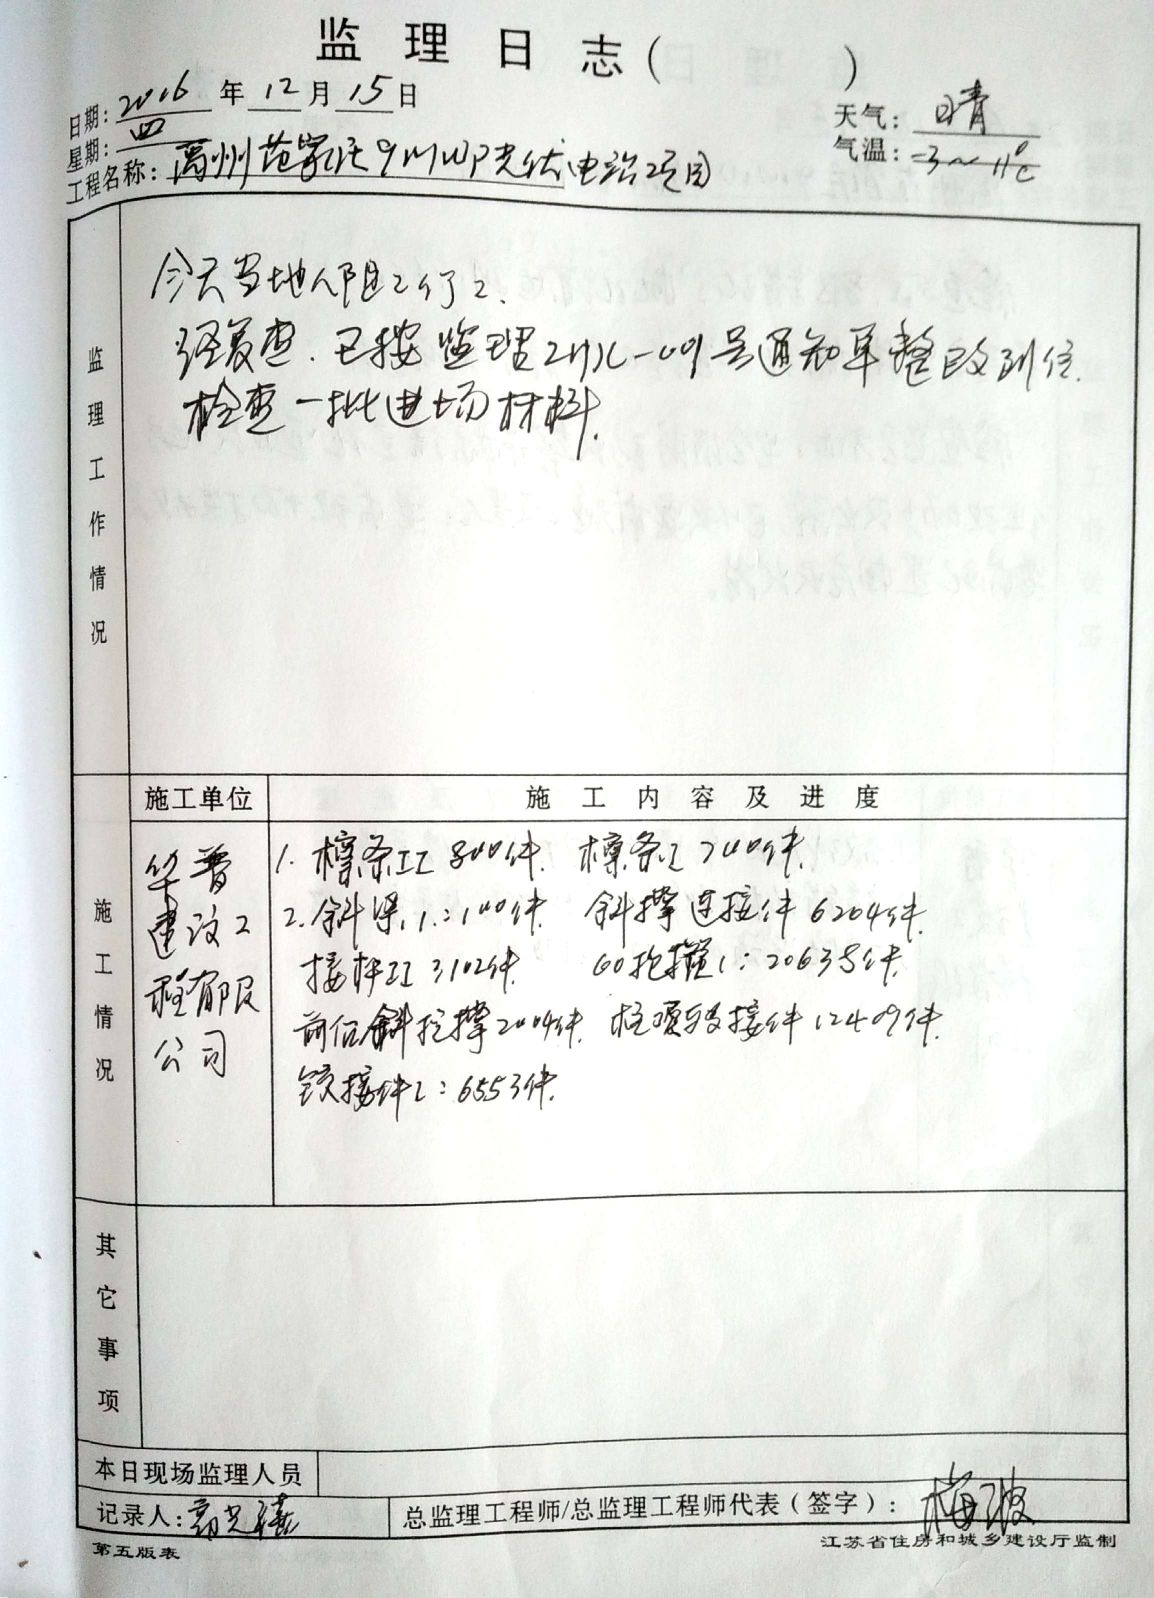 监理日志( )
日期: 2016 年 12 月 15 日
天气: 晴
星期: 四
气温: -3~11℃
工程名称: 禹州范家庄9MWP光伏电站项目
监理工作情况
今天当地人阻工停工.
经复查.已按监理ZHJL-009号通知单整改到位.
检查一批进场材料.
施工单位
施工内容及进度
施工情况
华普
建设工
程有限
公司
1. 檩条II 800件. 檩条I 700件.
2. 斜梁1:100件. 斜撑连接件6204件.
接杆II 3102件. 60抱箍1:20635件.
前后斜拉撑2004件. 柱顶连接件12409件.
铰接件2:6553件.
其它事项
本日现场监理人员
记录人:
总监理工程师/总监理工程师代表(签字): 梅波
第五版表
江苏省住房和城乡建设厅监制